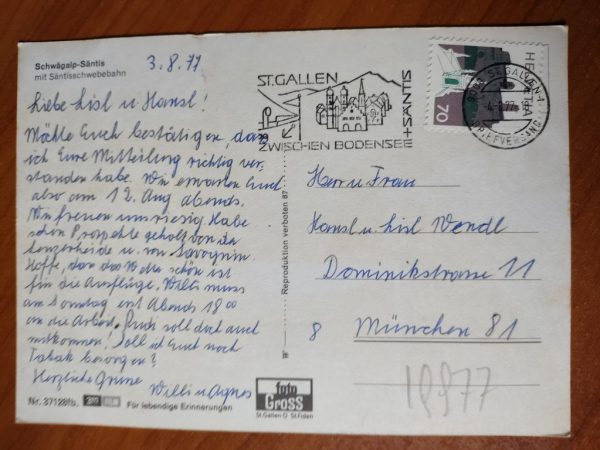 Schwägalp-Säntis
mit Säntisschwebebahn
3.8.77
Liebe Lisl u. Hansl!
Möchte Euch bestätigen, dass
ich Eure Mitteilung richtig ver-
standen habe. Wir erwarten Euch
also am 12. Aug abends.
Wir freuen uns riesig. Habe
schon Prospekte geholt von der
Lenzerheide u. von Savognin.
Hoffe, dass das Wetter schön ist
für die Ausflüge. Willi muss
am Sonntag erst Abends 18 00
an die Arbeit. soll doch auch
mitkommen! Soll ich Euch noch
Tabak besorgen?
Herzliche Grüsse
Willi u. Agnes
Nr. 37128fb.
Für lebendige Erinnerungen
foto
GROSS
St.Gallen O St.Fiden
Reproduktion verboten 87
ST.GALLEN
ZWISCHEN BODENSEE
+SÄNTIS
HELVETIA
70
9001 ST.GALLEN 1
-4.8.77
BRIEFVERSAND
Herr u. Frau
Hansl u. Lisl Wendl
Dominikstrasse 11
8 München 81
19977